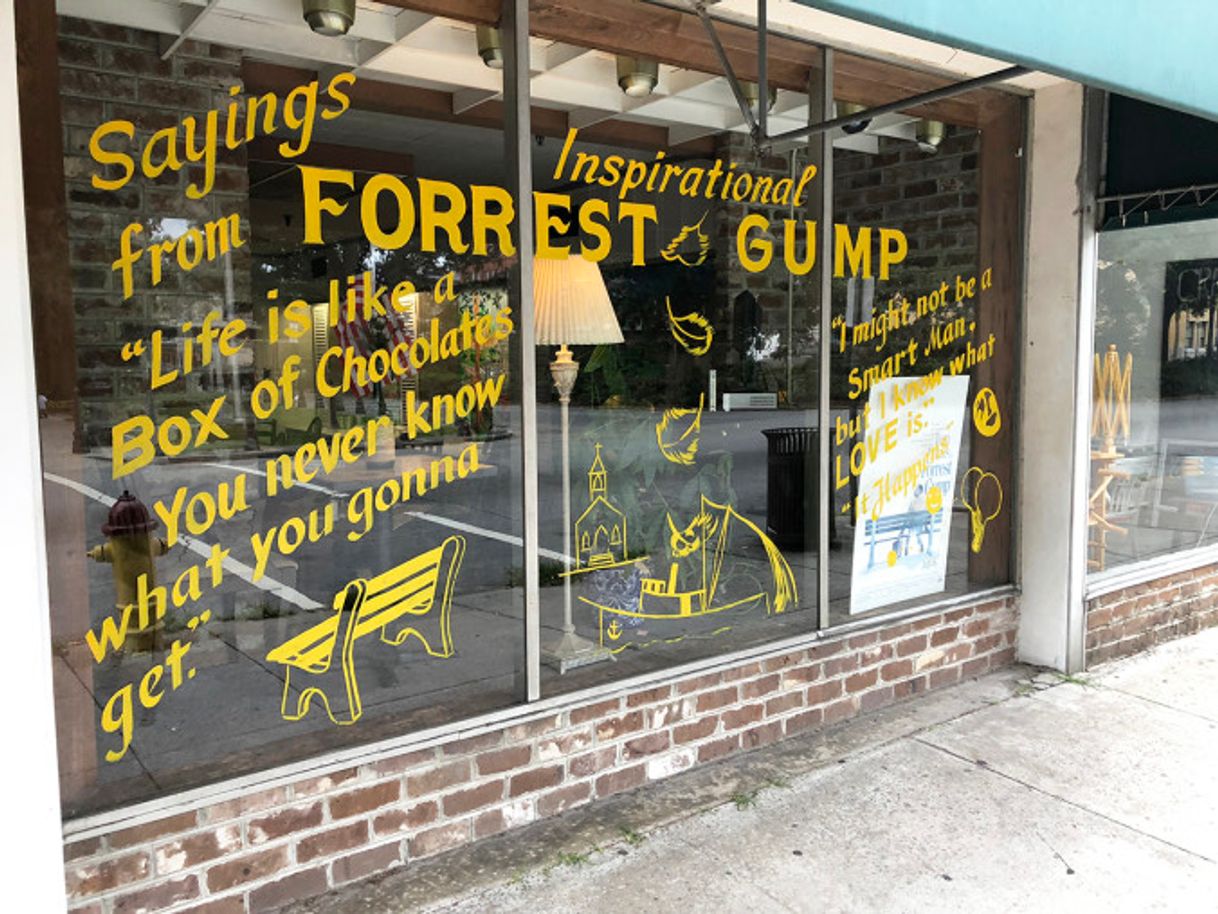 Sayings
from
Inspirational
FORREST GUMP
"Life is like a
Box of Chocolates
You never know
what you gonna
get."
"I might not be a
Smart Man.
but I know what
LOVE is."
"It Happens!"
Forrest
Gump